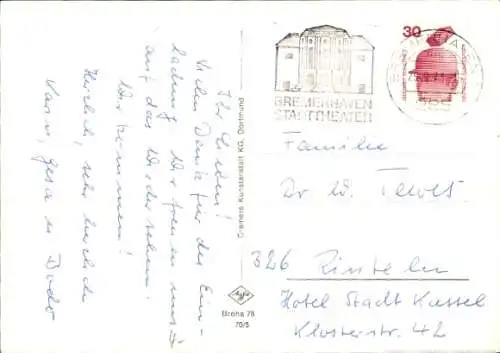 Ihr Lieben!
Vielen Dank für die Ein-
ladung. Wir freuen uns
auf das Wiedersehen.
Wir kommen!
Herzlich, sehr herzlich
Gesa u Bodo
Cramers Kunstanstalt KG, Dortmund
Agfa
Breha 78
70/5
BREMERHAVEN
STADTTHEATER
30
Familie
Dr W. Tewes
326 Rinteln
Hotel Stadt Kassel
Klosterstr. 42